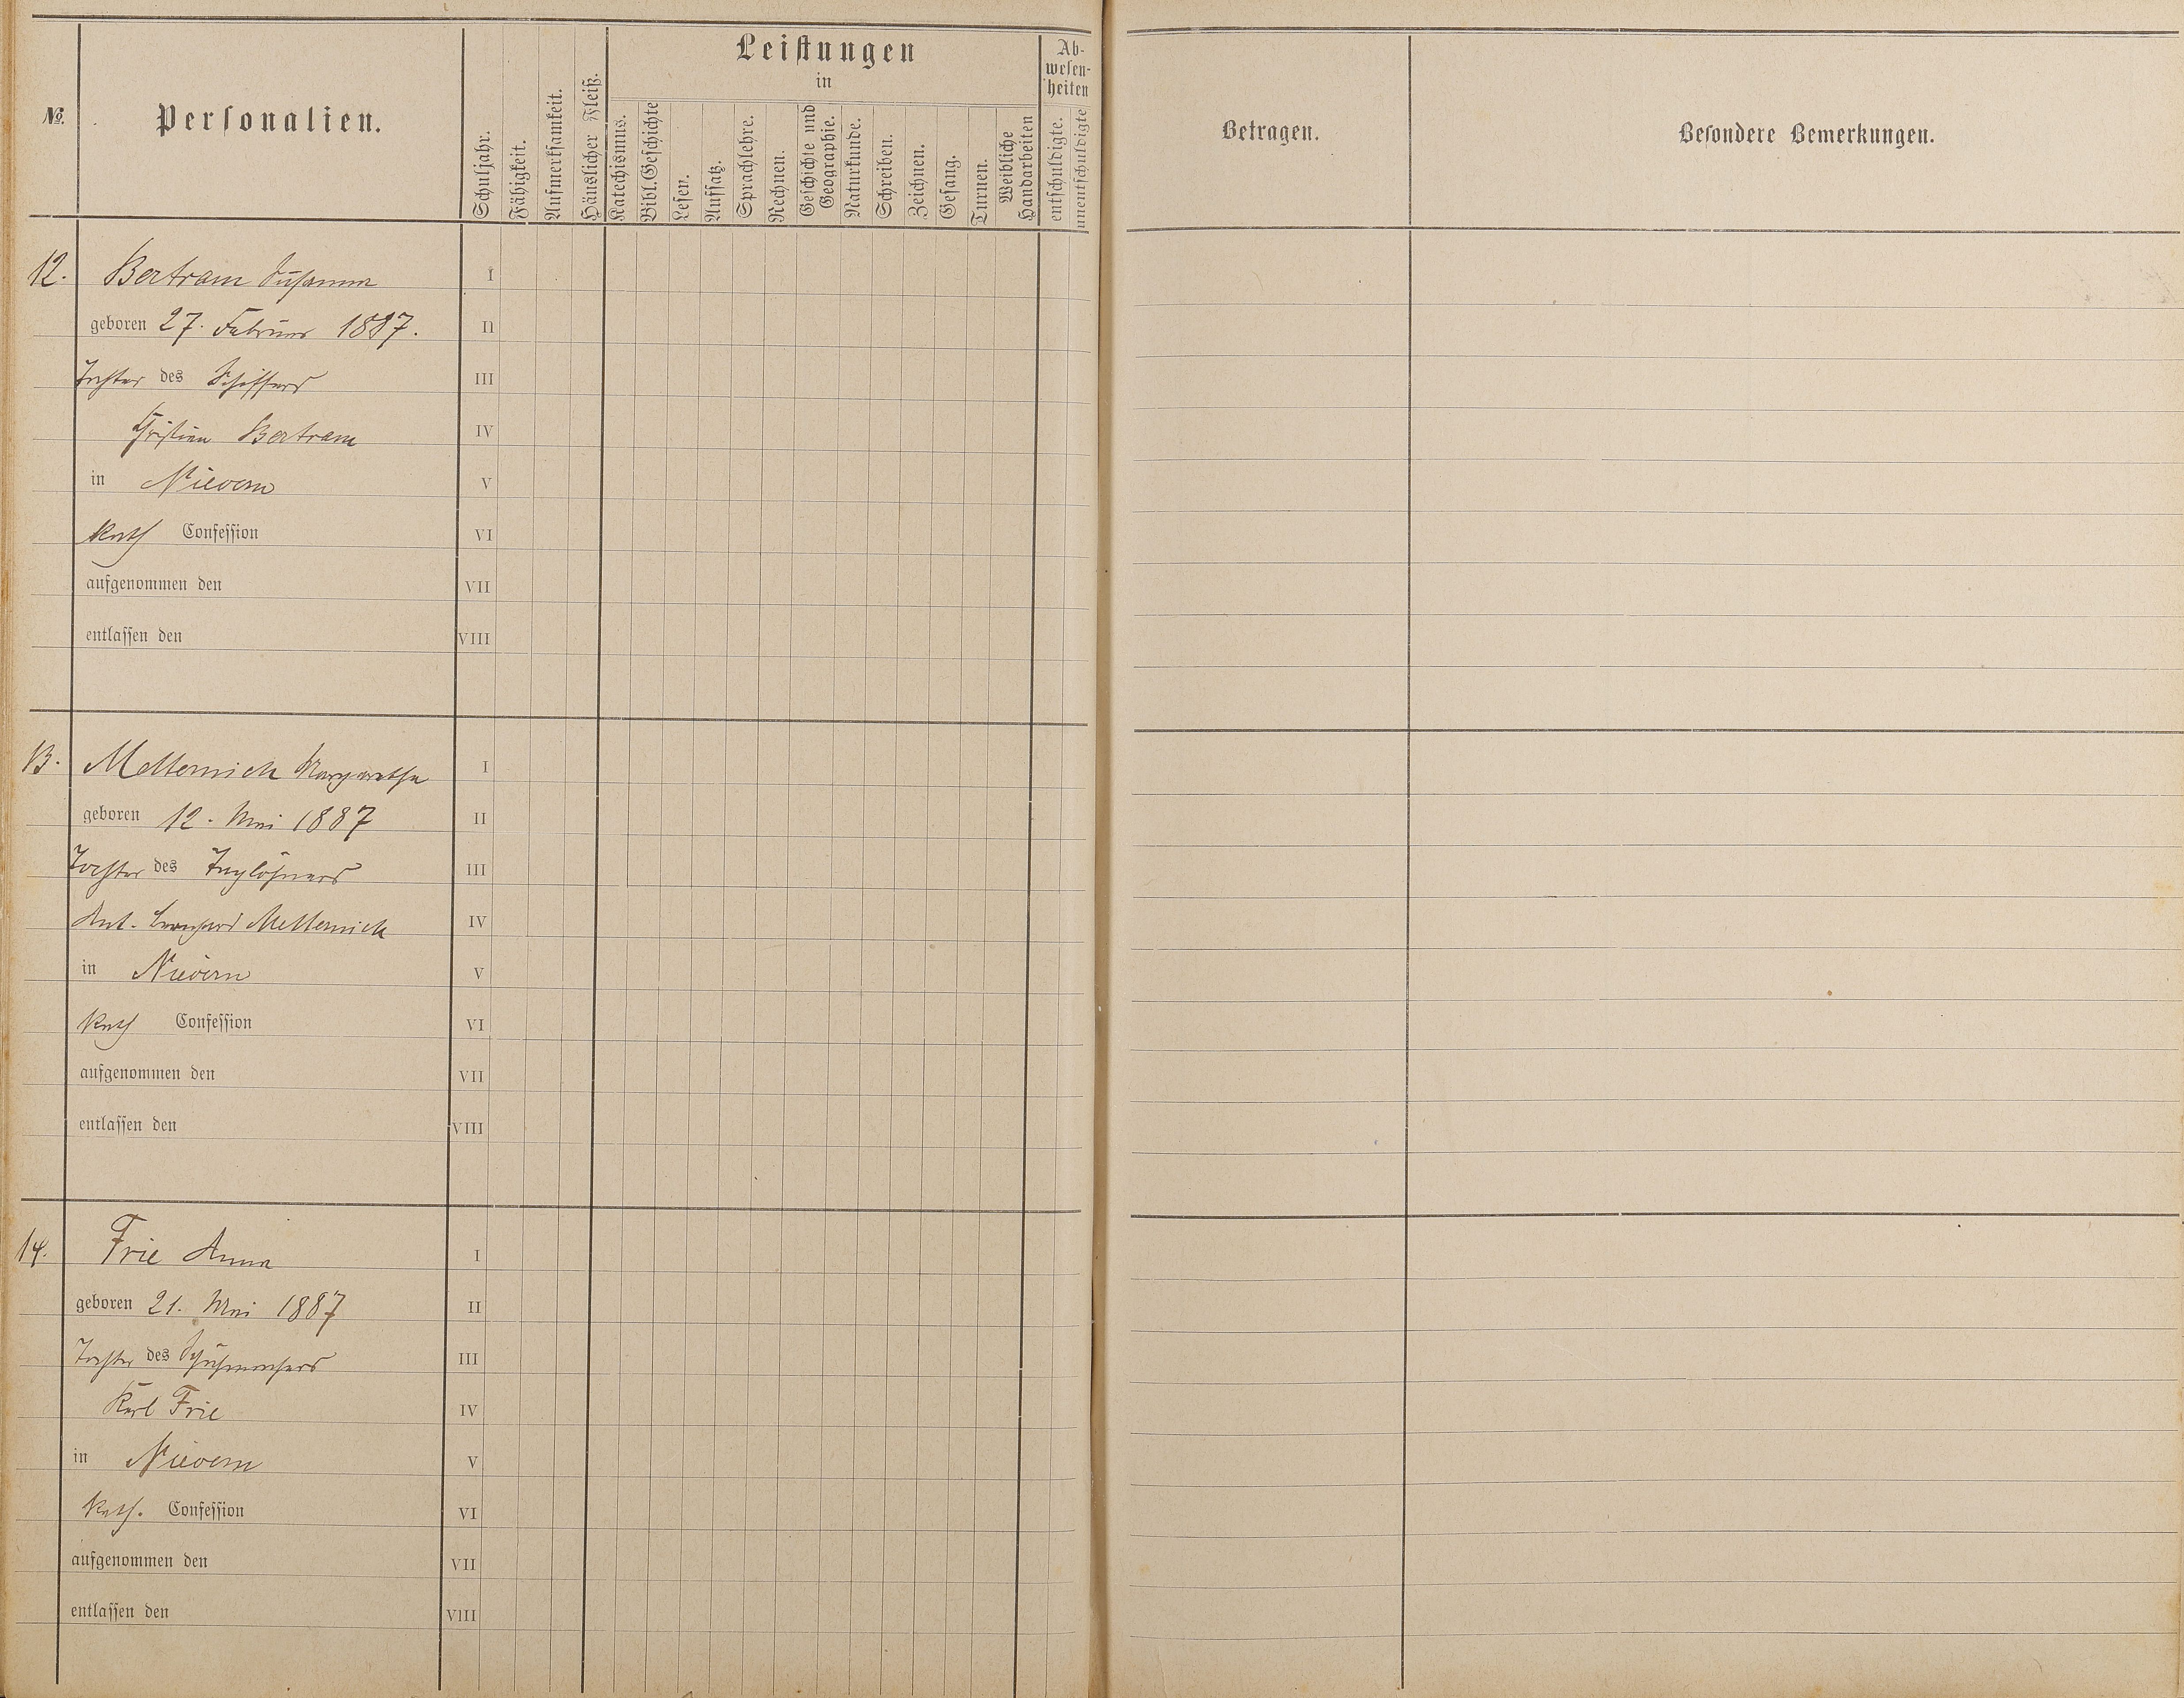 №.
Personalien.
Schuljahr.
Fähigkeit.
Aufmerksamkeit.
Häuslicher Fleiß.
Leistungen
in
Katechismus.
Bibl. Geschichte
Lesen.
Aufsatz.
Sprachlehre.
Rechnen.
Geschichte und
Geographie.
Naturkunde.
Schreiben.
Zeichnen.
Gesang.
Turnen.
Weibliche
Handarbeiten
Ab-
wesen-
heiten
entschuldigte.
unentschuldigte
Betragen.
Besondere Bemerkungen.
12. Bertram Susanna I
geboren 27. Februar 1887. II
Tochter des Schiffers III
Christian Bertram IV
in Nievern V
Kath Confession VI
aufgenommen den VII
entlassen den VIII
13. Metternich Margaretha I
geboren 12. Mai 1887 II
Tochter des Taglöhners III
Ant. Metternich IV
in Nievern V
Kath Confession VI
aufgenommen den VII
entlassen den VIII
14. Frie Anna I
geboren 21. Mai 1887 II
Tochter des Schuhmachers III
Karl Frie IV
in Nievern V
Kath. Confession VI
aufgenommen den VII
entlassen den VIII